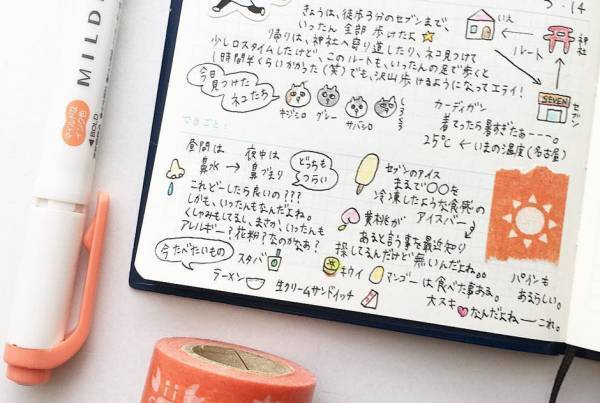 5.14
きょうは、徒歩3分のセブンまで、
いったん全部歩けたよ
帰りは、神社へ寄り道したり、ネコ見つけて
少しロスタイムしたけど、このルートも、いったんの足で歩くと
1時間半くらいかかった(笑)でも、沢山歩けるようになってエライ!
いえ
神社
ルート
SEVEN
セブン
今日見つけたネコたち
キジシロ
グレー
サバシロ
しろくろ
カーディガン
着てったら暑すぎたあーーー。
25℃ ← いまの温度(名古屋)
できごと:
昼間は
鼻水 → 夜中は
鼻づまり
どっちもつらい
これどーしたら良いの???
しかも、いったんもなんだよね。
くしゃみもしてるし、まさか、いったんも
アレルギー?花粉?なのかなぁ?
今たべたいもの
スタバ
ラーメン
生クリームサンドイッチ
セブンのアイス
ままで〇〇を
冷凍したような食感の
アイスバー
黄桃が
あると言う事を最近知り
探してるんだけど無いんだよね。。
キウイ
マンゴーは食べた事ある。
大スキ なんだよねーこれ。
パインも
あるらしい。
MILD
マイルドなインク色
BOLD